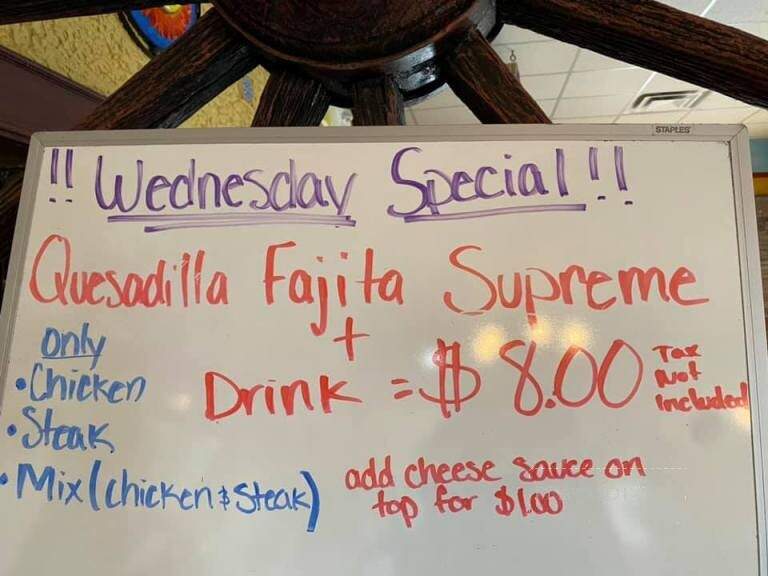 STAPLES
!! Wednesday Special !!
Quesadilla Fajita Supreme
+
Drink = $8.00
Tax
Not
included
only
• Chicken
• Steak
• Mix (chicken & Steak)
add cheese sauce on
top for $1.00